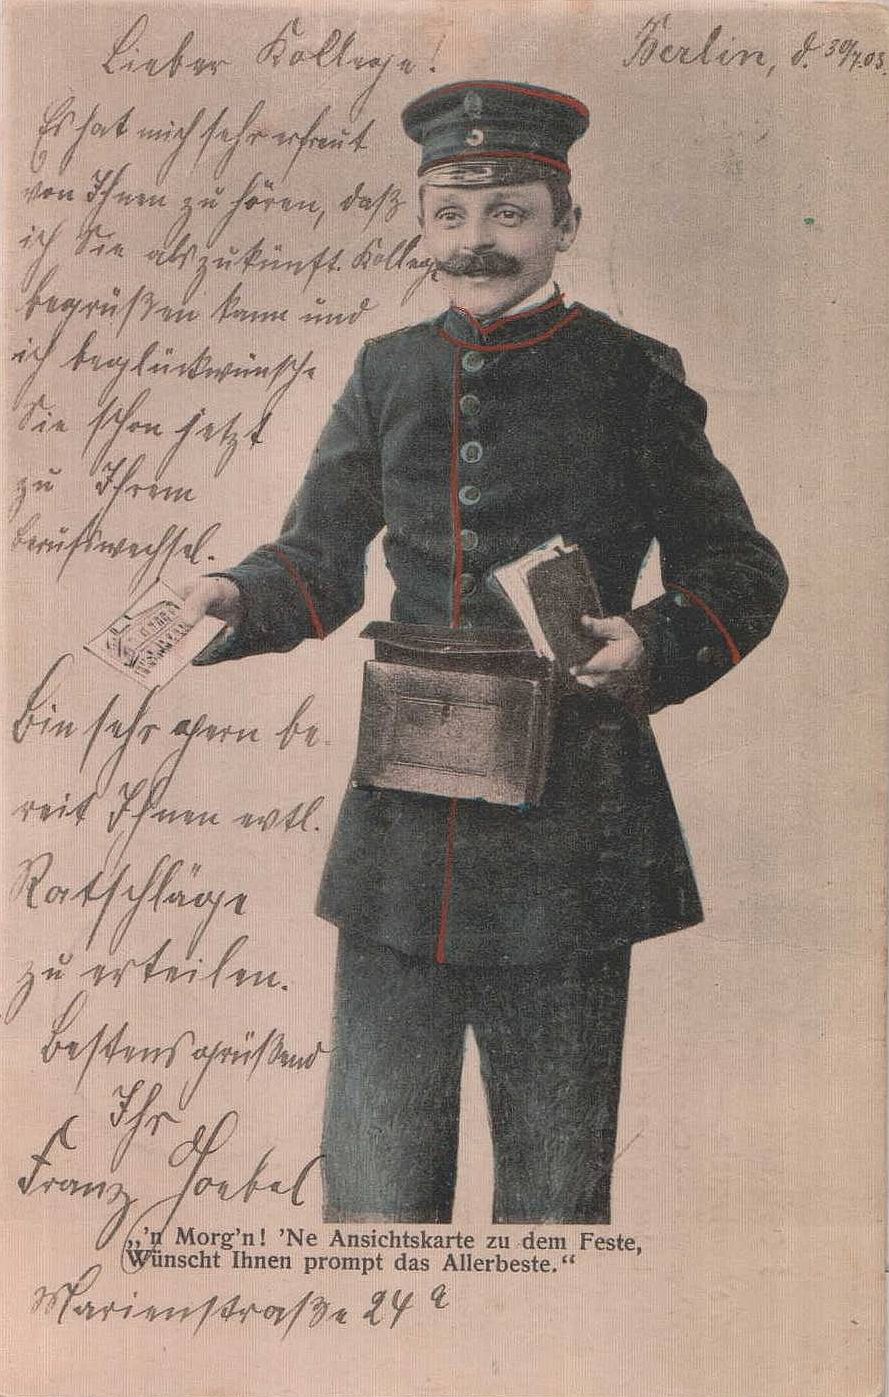 Berlin, d. 30/7.03.
Lieber Kollege!
Es hat mich sehr erfreut
von Ihnen zu hören, daß
ich Sie als zukünft. Kollege
begrüßen kann und
ich beglückwünsche
Sie schon jetzt
zu Ihrem
Berufswechsel.
Bin sehr gern be-
reit Ihnen evtl.
Ratschläge
zu erteilen.
Bestens grüßend
Ihr
Franz Hoebel
„'n Morg'n! 'Ne Ansichtskarte zu dem Feste,
Wünscht Ihnen prompt das Allerbeste.“
Marienstraße 24 a